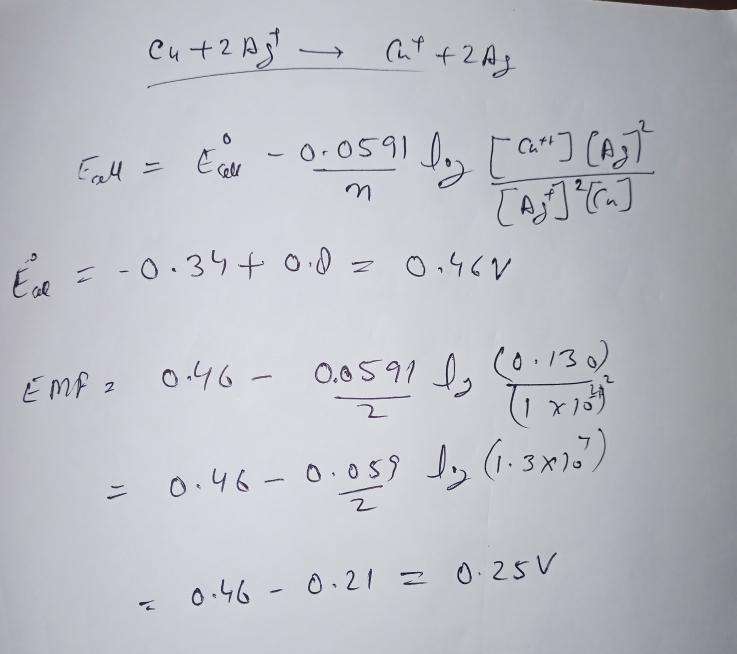 Cu + 2Ag⁺ → Cu⁺ + 2Ag
Ecell = E⁰cell - 0.0591/n log [Cu⁺⁺] [Ag]²/[Ag⁺]²[Cu]
E⁰cell = -0.34 + 0.8 = 0.46V
EMF = 0.46 - 0.0591/2 log (0.130)/
= 0.46 - 0.059/2 log (1.3×10⁷)
= 0.46 - 0.21 = 0.25V